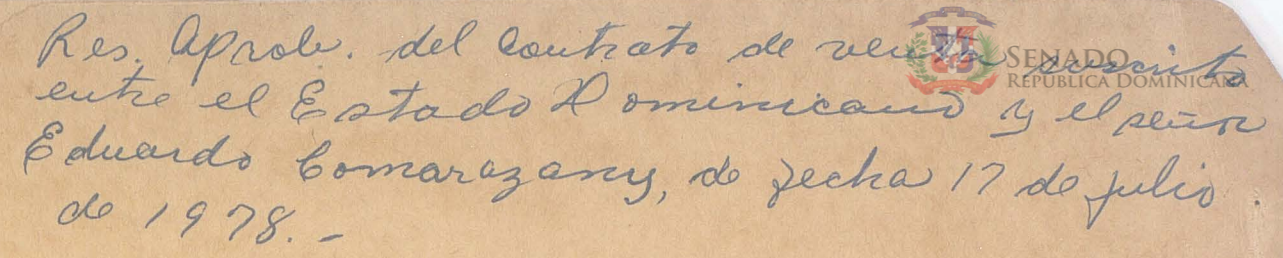 Res. Aprob. del Contrato de venta suscrito
entre el Estado Dominicano y el señor
Eduardo Comarazamy, de fecha 17 de julio
de 1978.-
SENADO
REPÚBLICA DOMINICANA